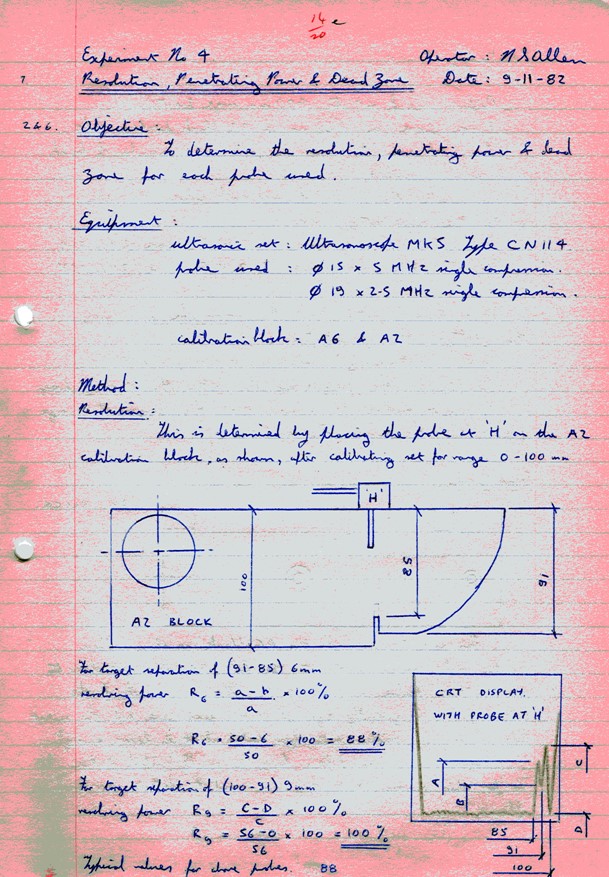 14
20
e
Experiment No 4
Operator : N S Allen
7
Resolution, Penetrating Power & Dead Zone
Date : 9-11-82
2 & 6.
Objective :
To determine the resolution, penetrating power & dead
zone for each probe used.
Equipment :
ultrasonic set : Ultrasonoscope MK5 Type CN114
probe used : Ø 15 x 5 MHz single compression.
Ø 19 x 2-5 MHz single compression.
calibration block : A6 & A2
Method :
Resolution :
This is determined by placing the probe at 'H' on the A2
calibration block, as shown, after calibrating set for range 0-100 mm
'H'
100
85
91
A2 BLOCK
For target separation of (91-85) 6mm
resolving power R6 = a-b / a x 100%
R6 = 50-6 / 50 x 100 = 88%
CRT DISPLAY.
WITH PROBE AT 'H'
A
B
C
D
85
91
100
For target separation of (100-91) 9mm
resolving power R9 = C-D / C x 100%
R9 = 56-0 / 56 x 100 = 100%
Typical values for above probes. 88